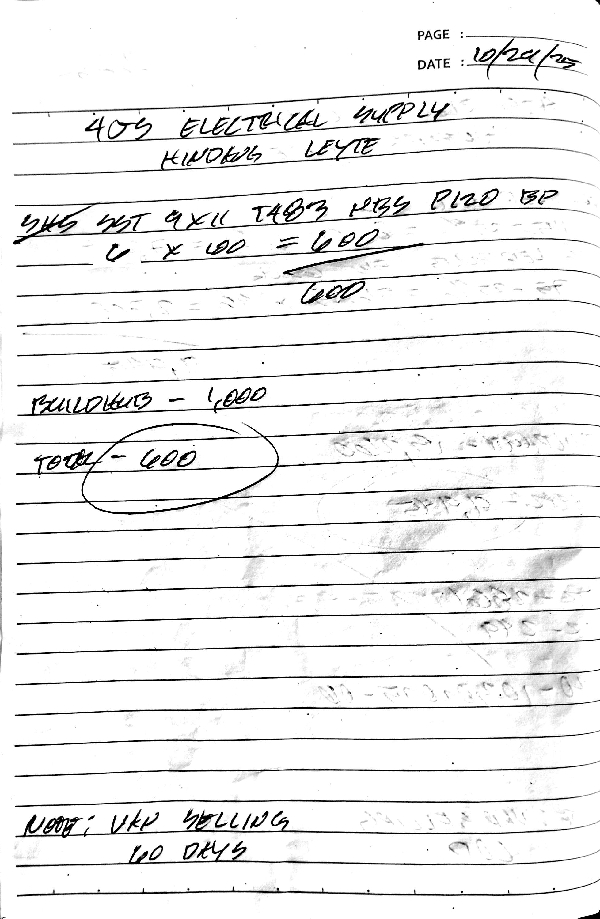 PAGE :
DATE : 10/29/25
4GS ELECTRICAL SUPPLY
HINDANG LEYTE
SST 9X11 T483 NBS P120 BP
6 X 100 = 600
600
BUILDHUB - 1,000
TOTAL - 600
NOTE: VAN SELLING
60 DAYS